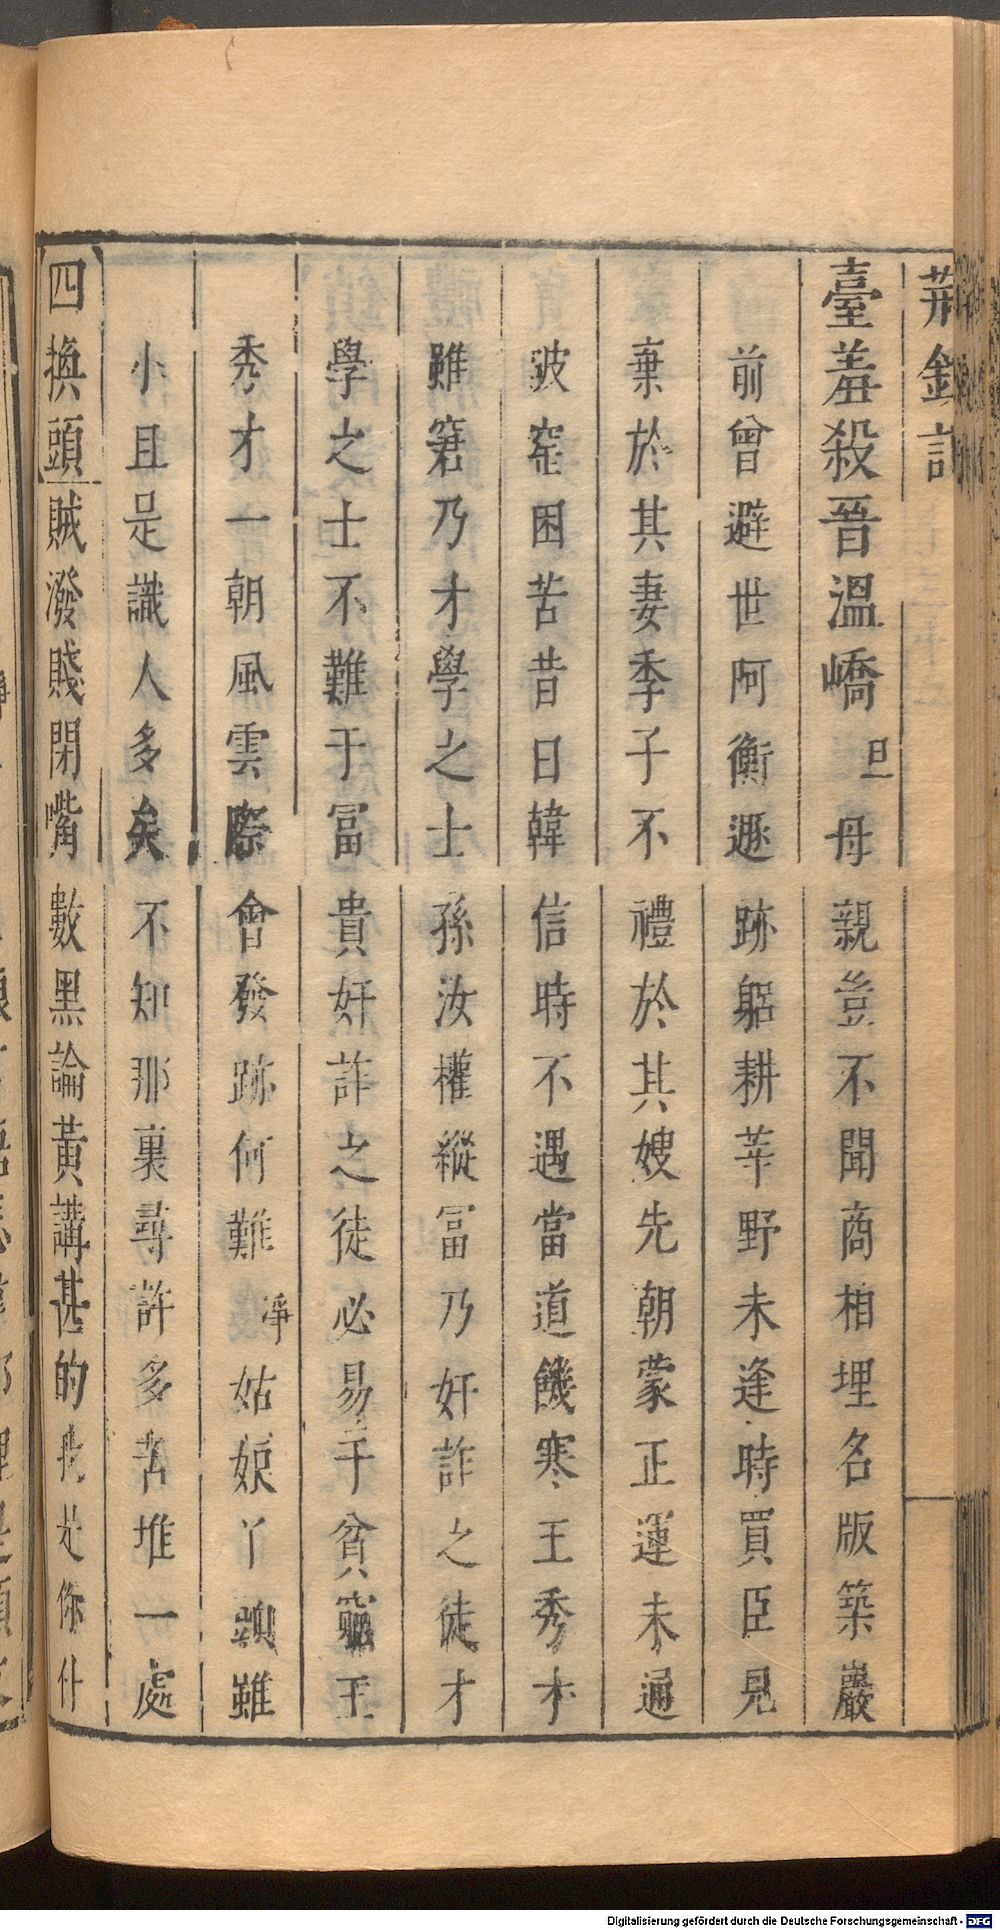 荊釵記
臺羞殺晉溫嶠旦母親豈不聞商相埋名版築巖
前曾避世阿衡遯跡躬耕莘野未逢時買臣見
棄於其妻季子不禮於其嫂先朝蒙正運未通
破窰困苦昔日韓信時不遇當道饑寒王秀才
雖窘乃才學之士孫汝權縱冨乃奸詐之徒才
學之士不難于冨貴奸詐之徒必易于貧窮王
秀才一朝風雲際會發跡何難淨姑娘丫頭雖
小且是識人多矣不知那裏尋許多苦堆一處
四換頭賊潑賤閉嘴數黑論黃講甚的我是你什
Digitalisierung gefördert durch die Deutsche Forschungsgemeinschaft - DFG